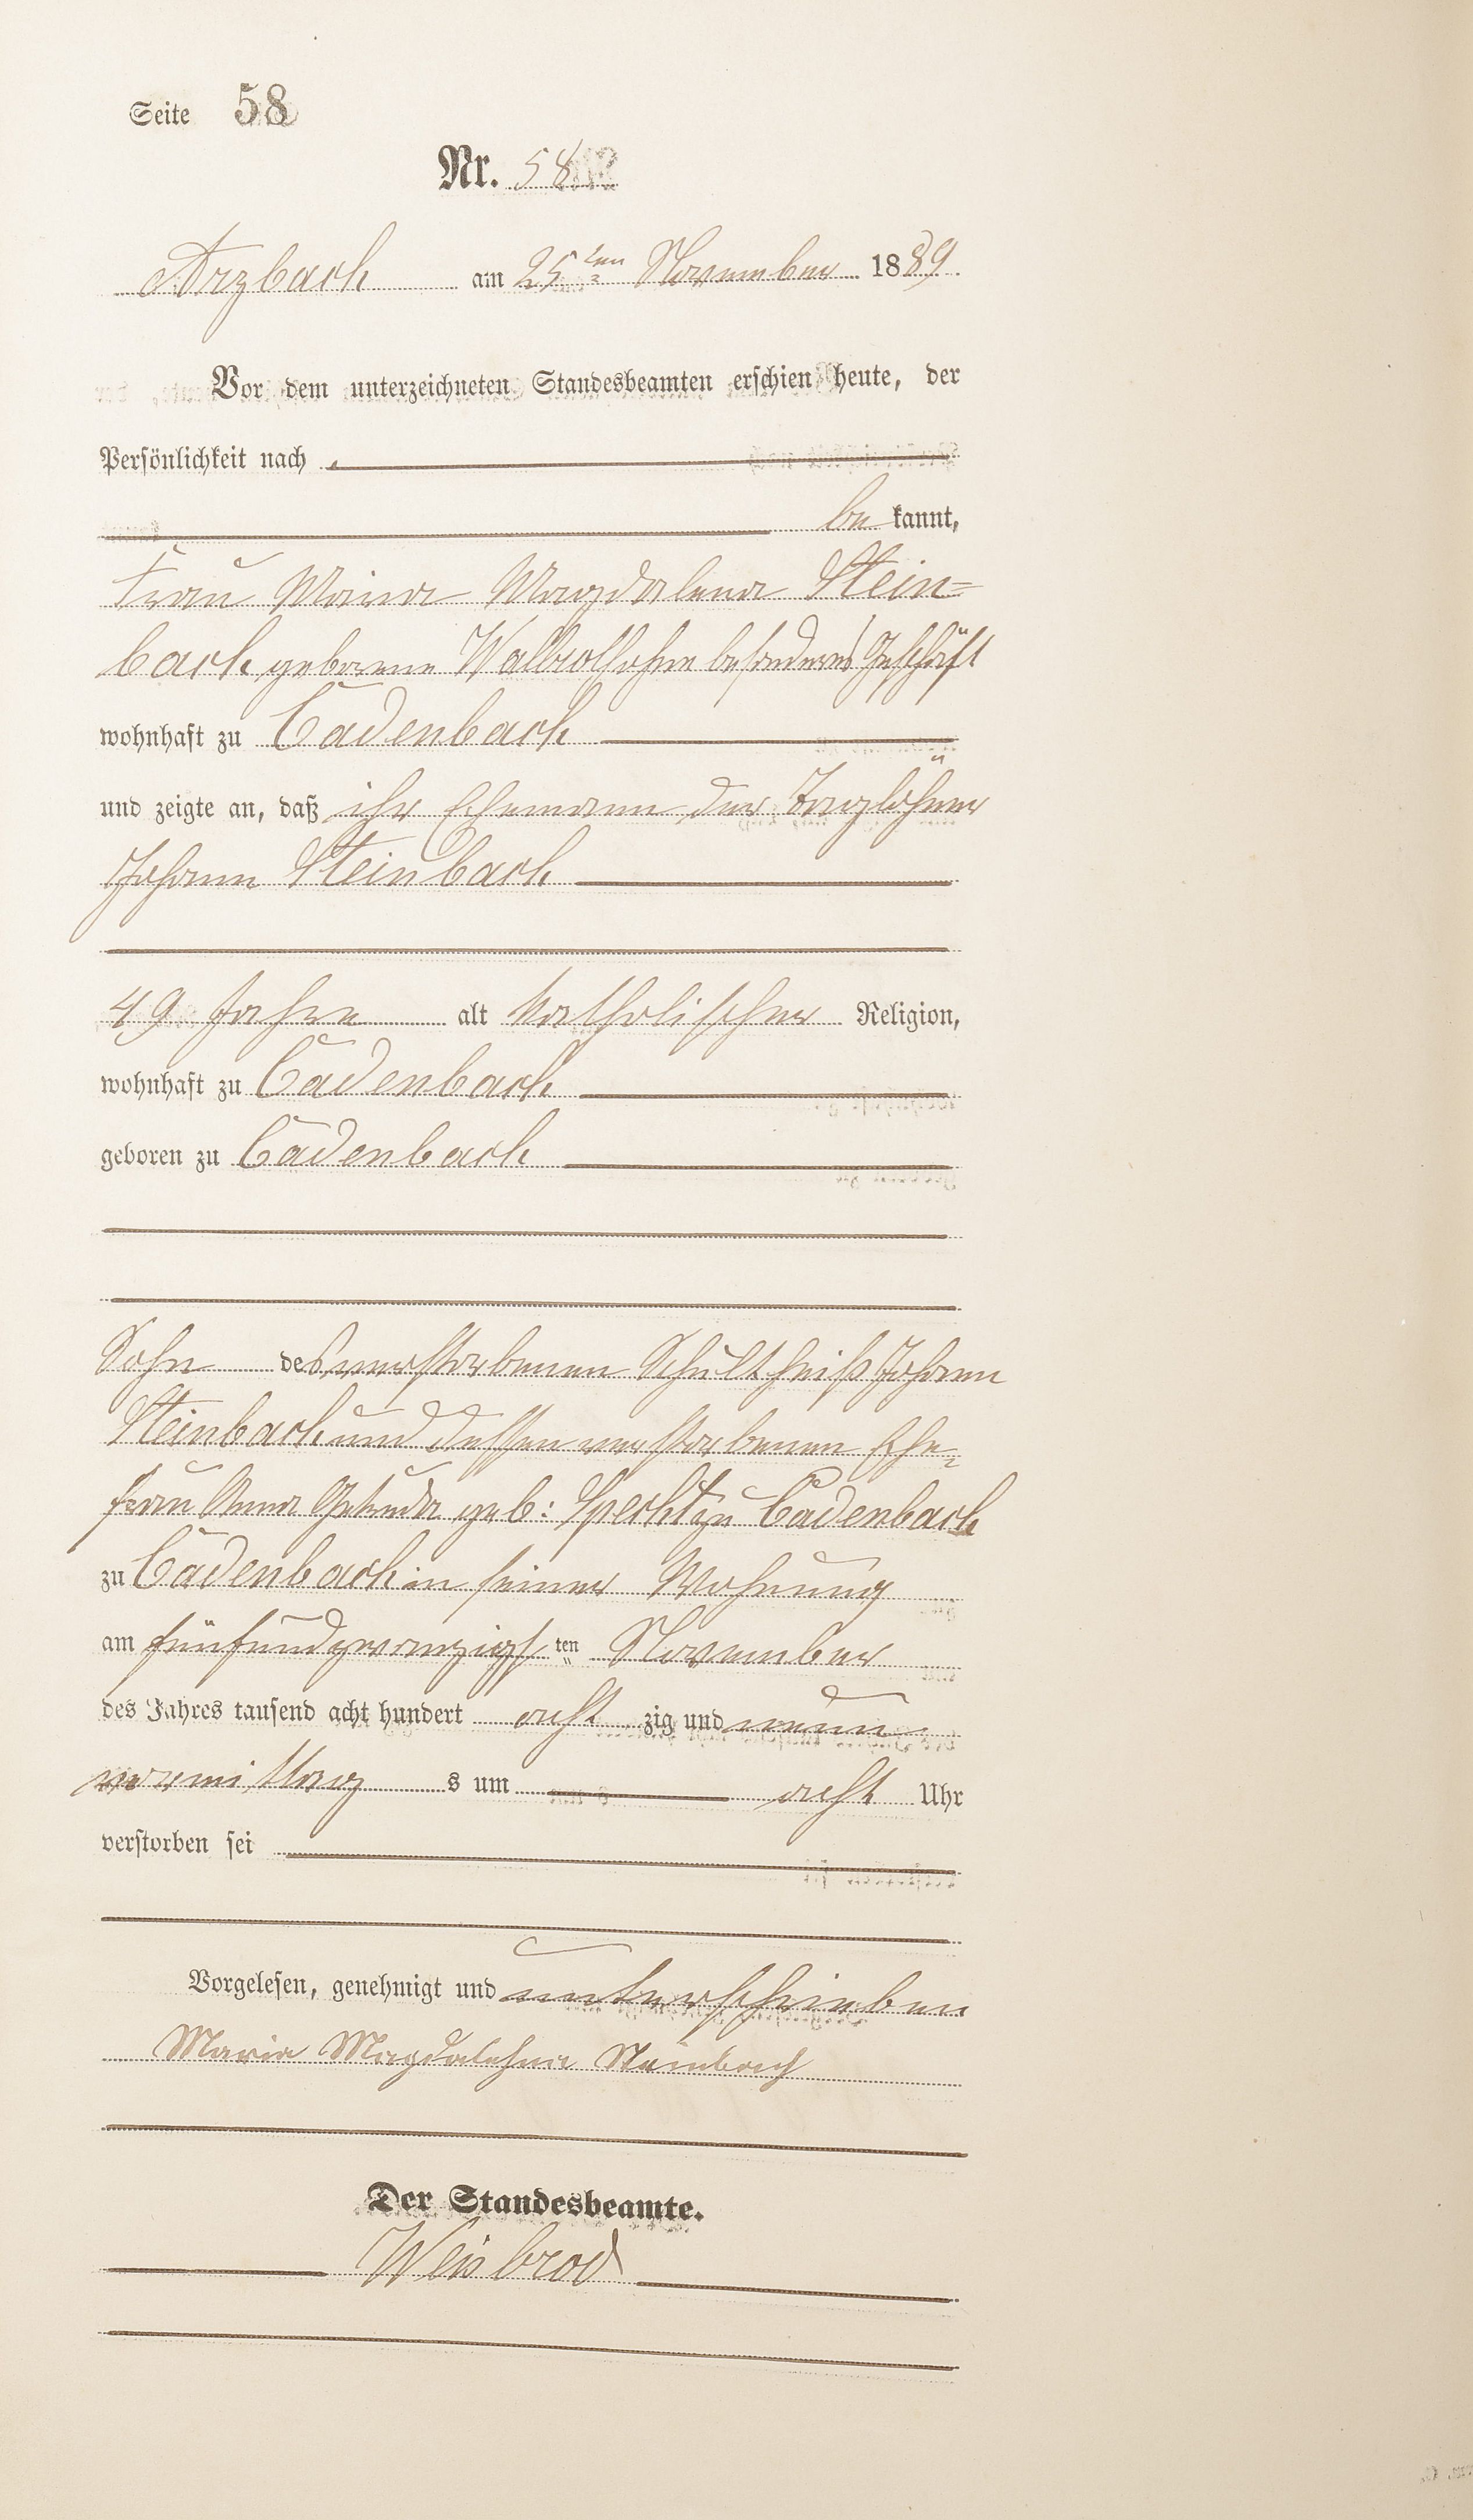 Seite 58
Nr. 58
Arzbach am 25ten November 1889.
Vor dem unterzeichneten Standesbeamten erschien heute, der
Persönlichkeit nach
be kannt,
Frau Maria Magdalena Stein=
bach geborene ohne besonderes Geschäft
wohnhaft zu Cadenbach
und zeigte an, daß ihr Ehemann der Taglöhner
Johann Steinbach
49 Jahre alt katholischer Religion,
wohnhaft zu Cadenbach
geboren zu Cadenbach
Sohn des verstorbenen Schultheiß Johann
Steinbach und dessen verstorbenen Ehe=
frau Anna geb: Specht zu Cadenbach
zu Cadenbach in seiner Wohnung
am fünfundzwanzigsten November
des Jahres tausend acht hundert acht zig und neun
vormittag s um acht Uhr
verstorben sei
Vorgelesen, genehmigt und unterschrieben
Maria Magdalehna Steinbach
Der Standesbeamte.
Weisbrod